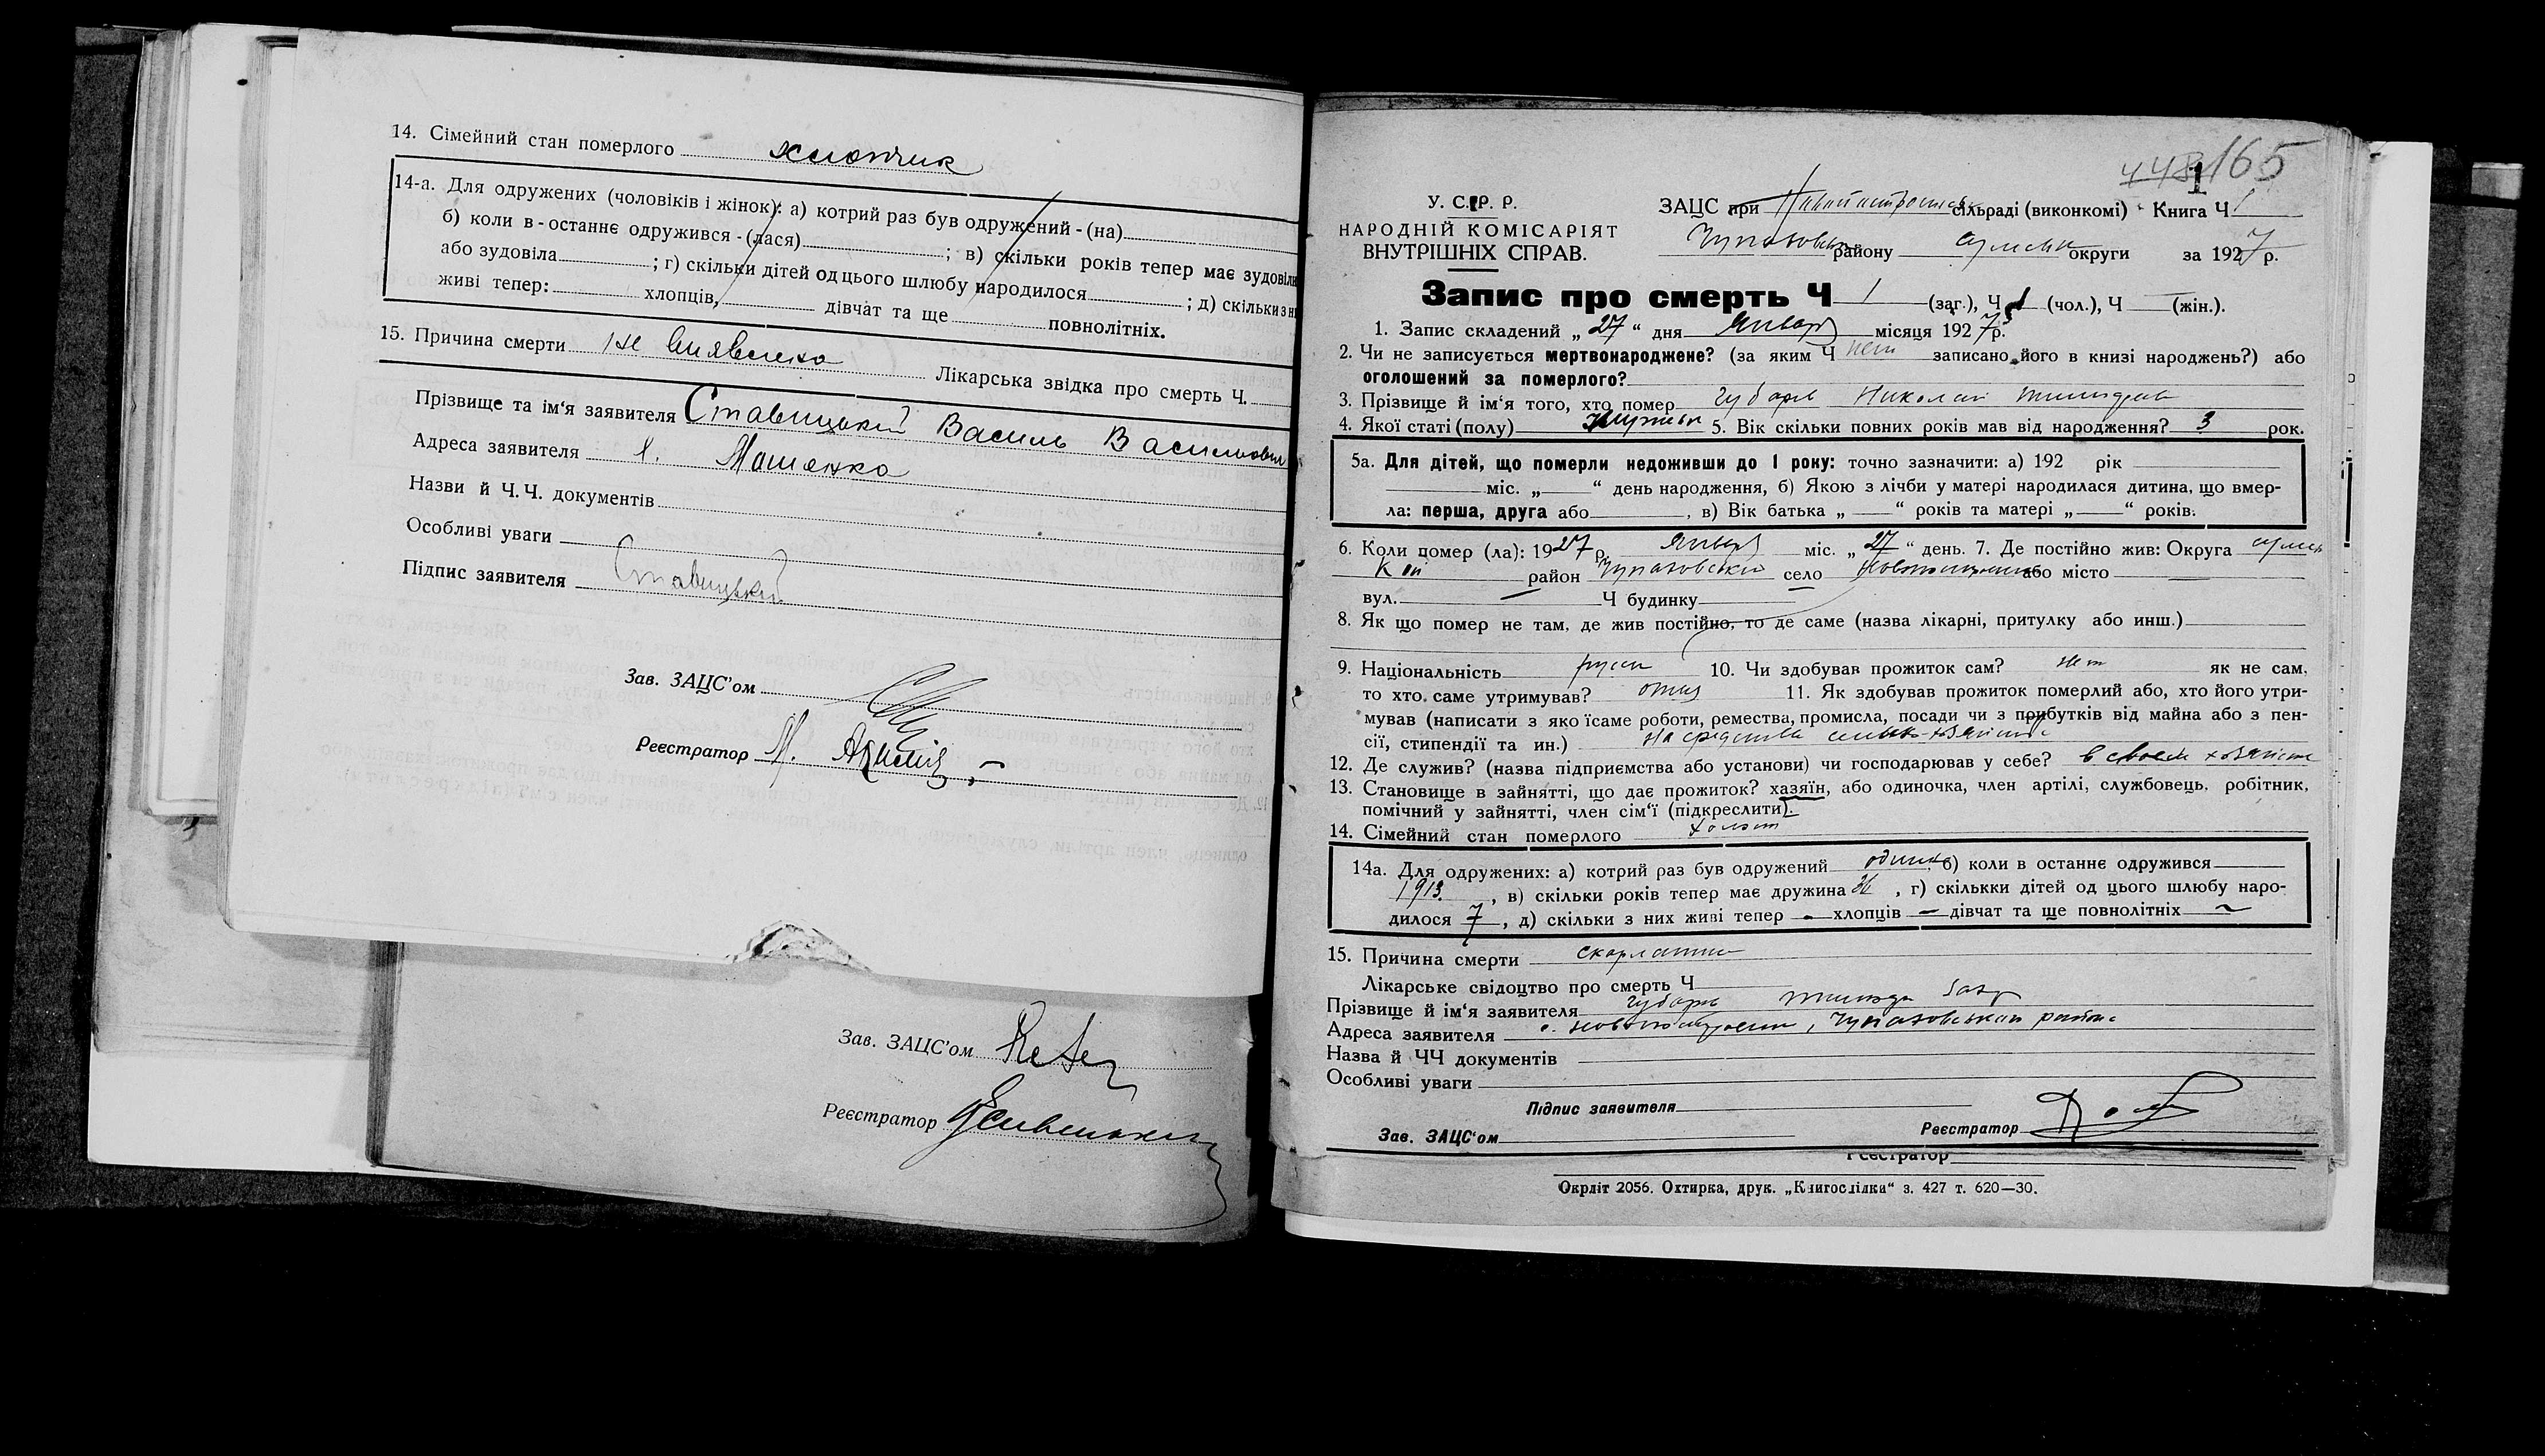 14. Сімейний стан померлого хлопчик
14-а. Для одружених (чоловіків і жінок): а) котрий раз був одружений-(на)
б) коли в-останнє одружився-(лася) ; в) скільки років тепер має зудовіли
або зудовіла ; г) скільки дітей од цього шлюбу народилося ; д) скільки з ни
живі тепер: хлопців, дівчат та ще повнолітніх.
15. Причина смерти не виявлено Лікарська звідка про смерть Ч.
Прізвище та ім'я заявителя Ставицький Василь Васильович
Адреса заявителя Машенка
Назви й Ч.Ч. документів
Особливі уваги
Підпис заявителя Ставицький
Зав. ЗАЦС'ом
Реєстратор М.
Зав. ЗАЦС'ом
Реєстратор
448 165
1
У. С. Р. Р.
НАРОДНІЙ КОМІСАРІЯТ
ВНУТРІШНІХ СПРАВ.
ЗАЦС при сільраді (виконкомі) Книга Ч 1
Чупаховськ району Сумськ округи за 1927 р.
Запис про смерть Ч 1 (заг.), Ч 1 (чол.), Ч — (жін.).
1. Запис складений „27“ дня Январ місяця 1927 р.
2. Чи не записується мертвонароджене? (за яким Ч нет записано його в книзі народжень?) або
оголошений за померлого?
3. Прізвище й ім'я того, хто помер Губарь Николай
4. Якої статі (полу) 5. Вік скільки повних років мав від народження? 3 рок.
5а. Для дітей, що померли недоживши до 1 року: точно зазначити: а) 192 рік
міс. „ “ день народження, б) Якою з лічби у матері народилася дитина, що вмер-
ла: перша, друга або , в) Вік батька „ “ років та матері „ “ років.
6. Коли помер (ла): 1927 р. Январ міс. „27“ день. 7. Де постійно жив: Округа Сумсь
кой район Чупаховский село або місто —
вул. — Ч будинку —
8. Як що помер не там, де жив постійно, то де саме (назва лікарні, притулку або инш.)
9. Національність русск 10. Чи здобував прожиток сам? нет як не сам,
то хто саме утримував? отец 11. Як здобував прожиток померлий або, хто його утри-
мував (написати з яко їсаме роботи, ремества, промисла, посади чи з прибутків від майна або з пен-
сії, стипендії та ин.) на средства
12. Де служив? (назва підприємства або установи) чи господарював у себе? в своем хозяйстве
13. Становище в зайнятті, що дає прожиток? хазяїн, або одиночка, член артілі, службовець, робітник,
помічний у зайнятті, член сім'ї (підкреслити).
14. Сімейний стан померлого холост
14а. Для одружених: а) котрий раз був одружений б) коли в останнє одружився
1913. , в) скільки років тепер має дружина , г) скількки дітей од цього шлюбу наро-
дилося 7 , д) скільки з них живі тепер — хлопців — дівчат та ще повнолітніх —
15. Причина смерти скарлатина
Лікарське свідоцтво про смерть Ч
Прізвище й ім'я заявителя Губарь
Адреса заявителя с. , Чупаховський района
Назва й ЧЧ документів
Особливі уваги
Підпис заявителя
Зав. ЗАЦС'ом Реєстратор
Реєстратор
Окрліт 2056. Охтирка, друк. „Книгоспілки“ з. 427 т. 620—30.